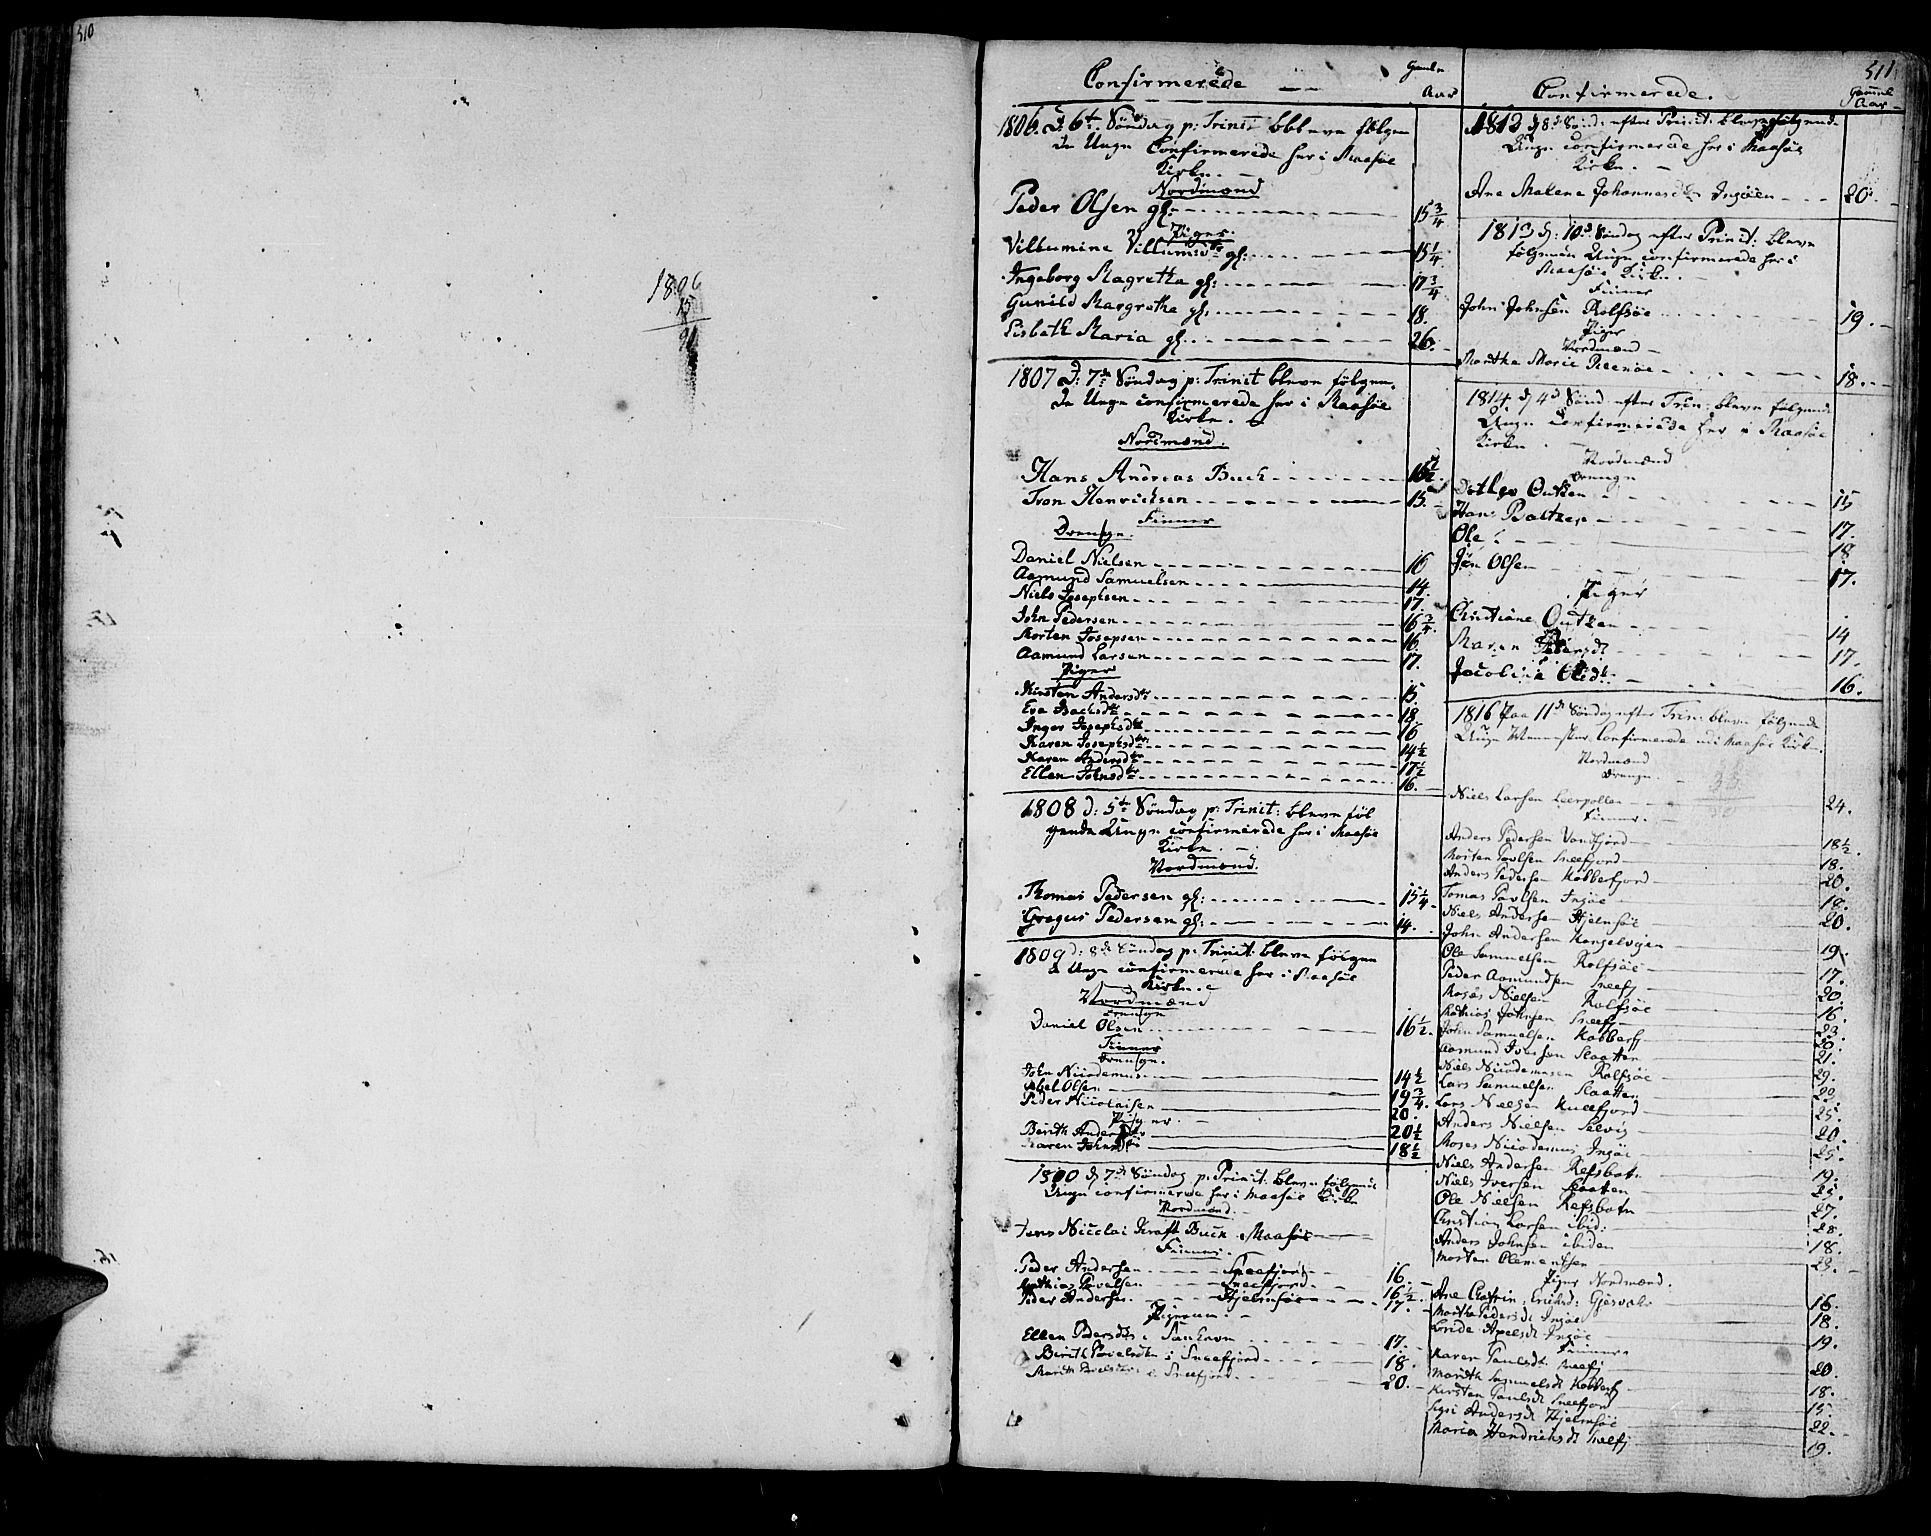 510
1806
15
91
511
Confirmerede
Gamle
Aar
1806. D: 6te Søndag p: Trinit bbleve følgen
de Unge Confirmerede her i Maasøe
Kirke.
Nordmænd
Peder Olsen gl: 15 3/4
Piger.
Villumine Villumsdr gl: 15 1/4
Ingeborg Magretha gl: 17 3/4
Gunild Margretha gl: 18.
Lisbeth Maria gl: 26.
1807 D: 7de Søndag p: Trinit bleve følgen
de Unge confirmerede her i Maasøe
Kirke.
Nordmænd.
Hans Andreas Buch 16 1/2
Tron Henrichsen 15.
Finner
Drenge.
Daniel Nielsen 16
Aamund Samuelsen 14
Niels Josephsen 17
John Pedersen 16 3/4
Morten Josepsen 16
Aamund Larsen 17.
Piger
Kirsten Andersdtr 15
Eva Isachsdtr 18
Inger Josephsdtr 16
Karen Josephsdtr 14 1/2
Karen Andersdtr 17 1/2
Ellen Johnsdtr 16.
1808 d: 5te Søndag p: Trinit: bleve føl
gende Unge confirmerede her i Maasøe
Kirke.
Nordmænd.
Thomas Pedersen gl: 15 1/4
Gregus Pedersen gl: 14.
1809 d: 8de Søndag p: Trinit: bleve følgen
de Unge confirmerede her i Maasøe
Kirke.
Nordmænd
Drenge
Daniel Olsen 16 1/2
Finner
Drenge.
John Nicodemus 14 1/2
Abel Olsen 19 3/4
Peder Nicolaisen 20.
Piger.
Berith Andersdtr 20 1/2
Karen Johnsdtr 18 1/2
1810 d 7de Søndag p: Trinit: bleve følgende
Unge confirmerede her i Maasøe Kirke
Nordmænd.
Jens Nicolai Kraft Buch Maasøe
Finner.
Peder Andersen Sneefjord 16.
Mathias Povelsen Sneefjord 16 1/2
Peder Andersen Hjelmsøe 17.
Pigerne.
Ellen Pedersdtr i 17.
Berith Povelsdtr i Sneefjord 18.
Marith Povelsdtr i Sneefjord 20.
Confirmerede.
Gammel
Aar
1812 d 8de Sønd: efter Trinit: bleve følgende
Unge confirmerede her i Maasøe
Kirke.
Ane Malene Johannesdtr Ingøen 20.
1813 d: 10de Søndag efter Trinit: bleve
følgende Unge confirmerede her i
Maasøe Kirke.
Finner
John Johnsen Rolfsøe 19.
Piger
Nordmænd
Marthe Marie 18.
1814 d 4de Sønd efter Trin: bleve følgende
Unge confirmerede her i Maasøe
Kirke
Nordmænd
Drenge
Ditlev 15
Hans Baltzer 17.
Ole 18
Jens Olsen 17.
Piger
Christiane 14
Maren Pedersdt 17.
Jacobine Olsdt 16.
1816 Paa 11te Søndag efter Trin: bleve følgende
Unge Mennesker Confirmerede udi Maasøe Kirke.
Nordmænd
Drenge.
Niels Larsen Leerpollen 24.
Finner.
Anders Pedersen 18 1/2
Morten Povlsen Sneefjord 18.
Anders Pedersen Kobberfjord 20.
Tomas Povlsen Ingøe 18.
Niels Andersen Hjelmsøe 20.
John Andersen 19.
Ole Samuelsen Rolfsøe 17.
Peder Aamundsen Sneefj 20.
Moses Nielsen Rolfsøe 16.
Mathias Johnsen Sneefj 23.
John Samuelsen Kobberfj 20.
Aamund Iversen Slaatten 21.
Niels Nicodemusen Rolfsøe 29.
Lars Samuelsen Slaatten 22.
Lars Nielsen 25.
Anders Nielsen Selvig 20.
Moses Nicodemus Ingøe 25.
Niels Andersen Refsbotn 19.
Niels Iversen Slaatten 23.
Ole Nielsen Refsbotn 27.
Christian Larsen ibid: 28.
Anders Johnsen ibidem 18.
Morten Clementsen 23.
Piger Nordmænd.
Ane Chatrin. Eriksd: Gjesvær 16.
Marthe Pedersdt Ingøe 18.
Axelsdt Ingøe 19.
Finner
Karen Paulsdt Sneefj 20.
Marith Samuelsdt Kobberfj 18.
Kirsten Paulsdt Sneefjord 15.
Andersdt Hjelmsøe 22.
Maria Hendrichsdt Sneefj 19.